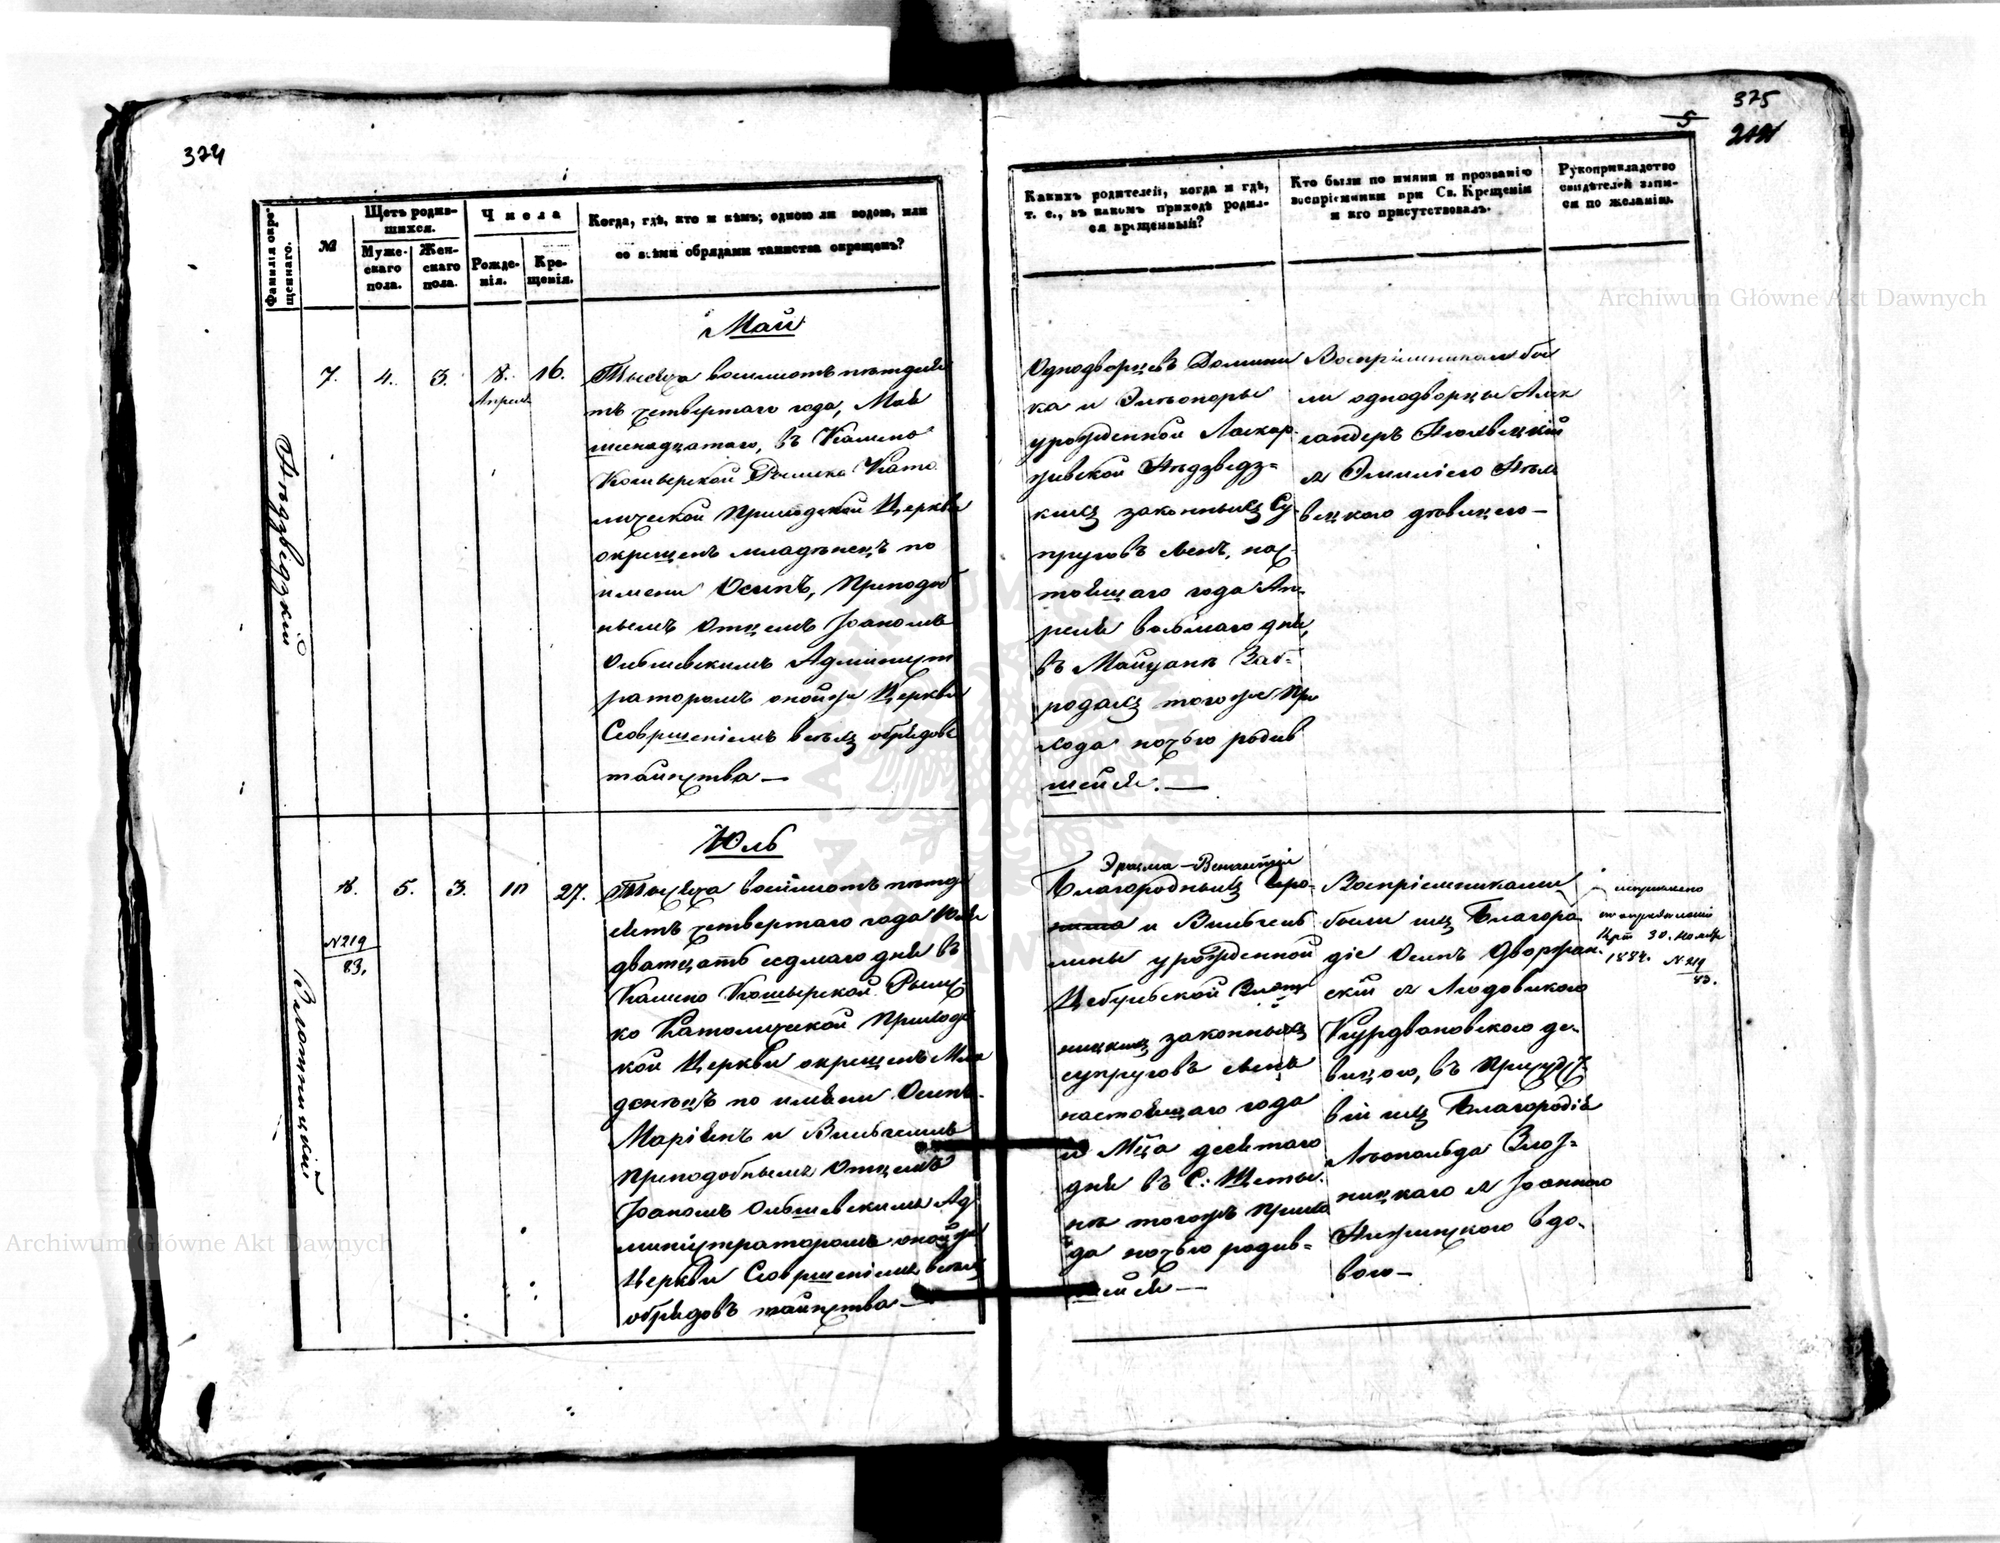 374
375
5
Фамилія окре-
щеннаго.
№
Щетъ родив-
шихся.
Муже-
скаго
пола.
Жен-
скаго
пола.
Числа
Рожде-
нія.
Кре-
щенія.
Когда, гдѣ, кто и кѣмъ; одною ли водою, или
со всѣми обрядами таинства окрещенъ?
Май
7. 4. 3. 8. 16.
Апреля
Тысяча восемсотъ пятдеся
тъ четвертаго года, Мая
шеснадцатаго, въ Камено
Кошырской Римско Като
лической Приходской Церкви
окрещенъ младѣнецъ по
имени Осипъ, Преподоб
нымъ Отцемъ Іоаномъ
Ольшевскимъ Админист
раторомъ онойже Церкви
Совршеніемъ всѣхъ обрядовъ
таинства —
Юль
8. 5. 3. 10 27.
N 219
83.
Тысяча восемсотъ пятд
есятъ четвертаго года Юля
дватцать седмаго дня въ
Камено Кошырской Римс-
ко Католической Приход
кой Церкви окрещенъ Мла
денецъ по имени Осипъ-
Маріянъ и Вильгелмъ
Преподобнымъ Отцемъ
Іоаномъ Ольшевскимъ Ад
министраторомъ онойже
Церкви Совршеніемъ всѣхъ
обрядовъ таинства —
Каких родителей, когда и гдѣ,
т. е., въ какомъ приходѣ родил-
ся крещенный?
Кто были по имяни и прозванію
воспріемники при Св. Крещеніи
и кто присутствовалъ.
Рукоприкладство
свидѣтелей запи-
си по желанію.
Однодворцевъ Домини
ка и Элеоноры
урожденной Ласкор-
жевской Нѣдзведз-
кихъ законныхъ Су-
пруговъ сынъ, нас-
тоящаго года Ап-
реля восмаго дня,
въ Майданѣ Заб-
родахъ тогоже При
хода ночью родив
шейся. —
Воспріемниками бы
ли однодворцы Алек
сандеръ
и Эмилією
девицею —
Эразма-Венантія
Благородныхъ
и Вильгель
мины урожденной
Цебульской Злот
ницкихъ законныхъ
супруговъ сынъ
настоящаго года
и Мца десятаго
дня въ С: Щеты-
нѣ тогожъ Прихо
да ночью родив-
шейся —
Воспріемниками
были ихъ Благоро
діе Осипъ Дворжан-
скій и Людовикою
Курдвановскою де-
вицою, въ
ихъ Благородія
Леопольда Злот-
ницкаго и Іоанною
вдо-
вою —
исправлено
по
30. Ноября
1884. N 219
83.
Archiwum Główne Akt Dawnych
Archiwum Główne Akt Dawnych